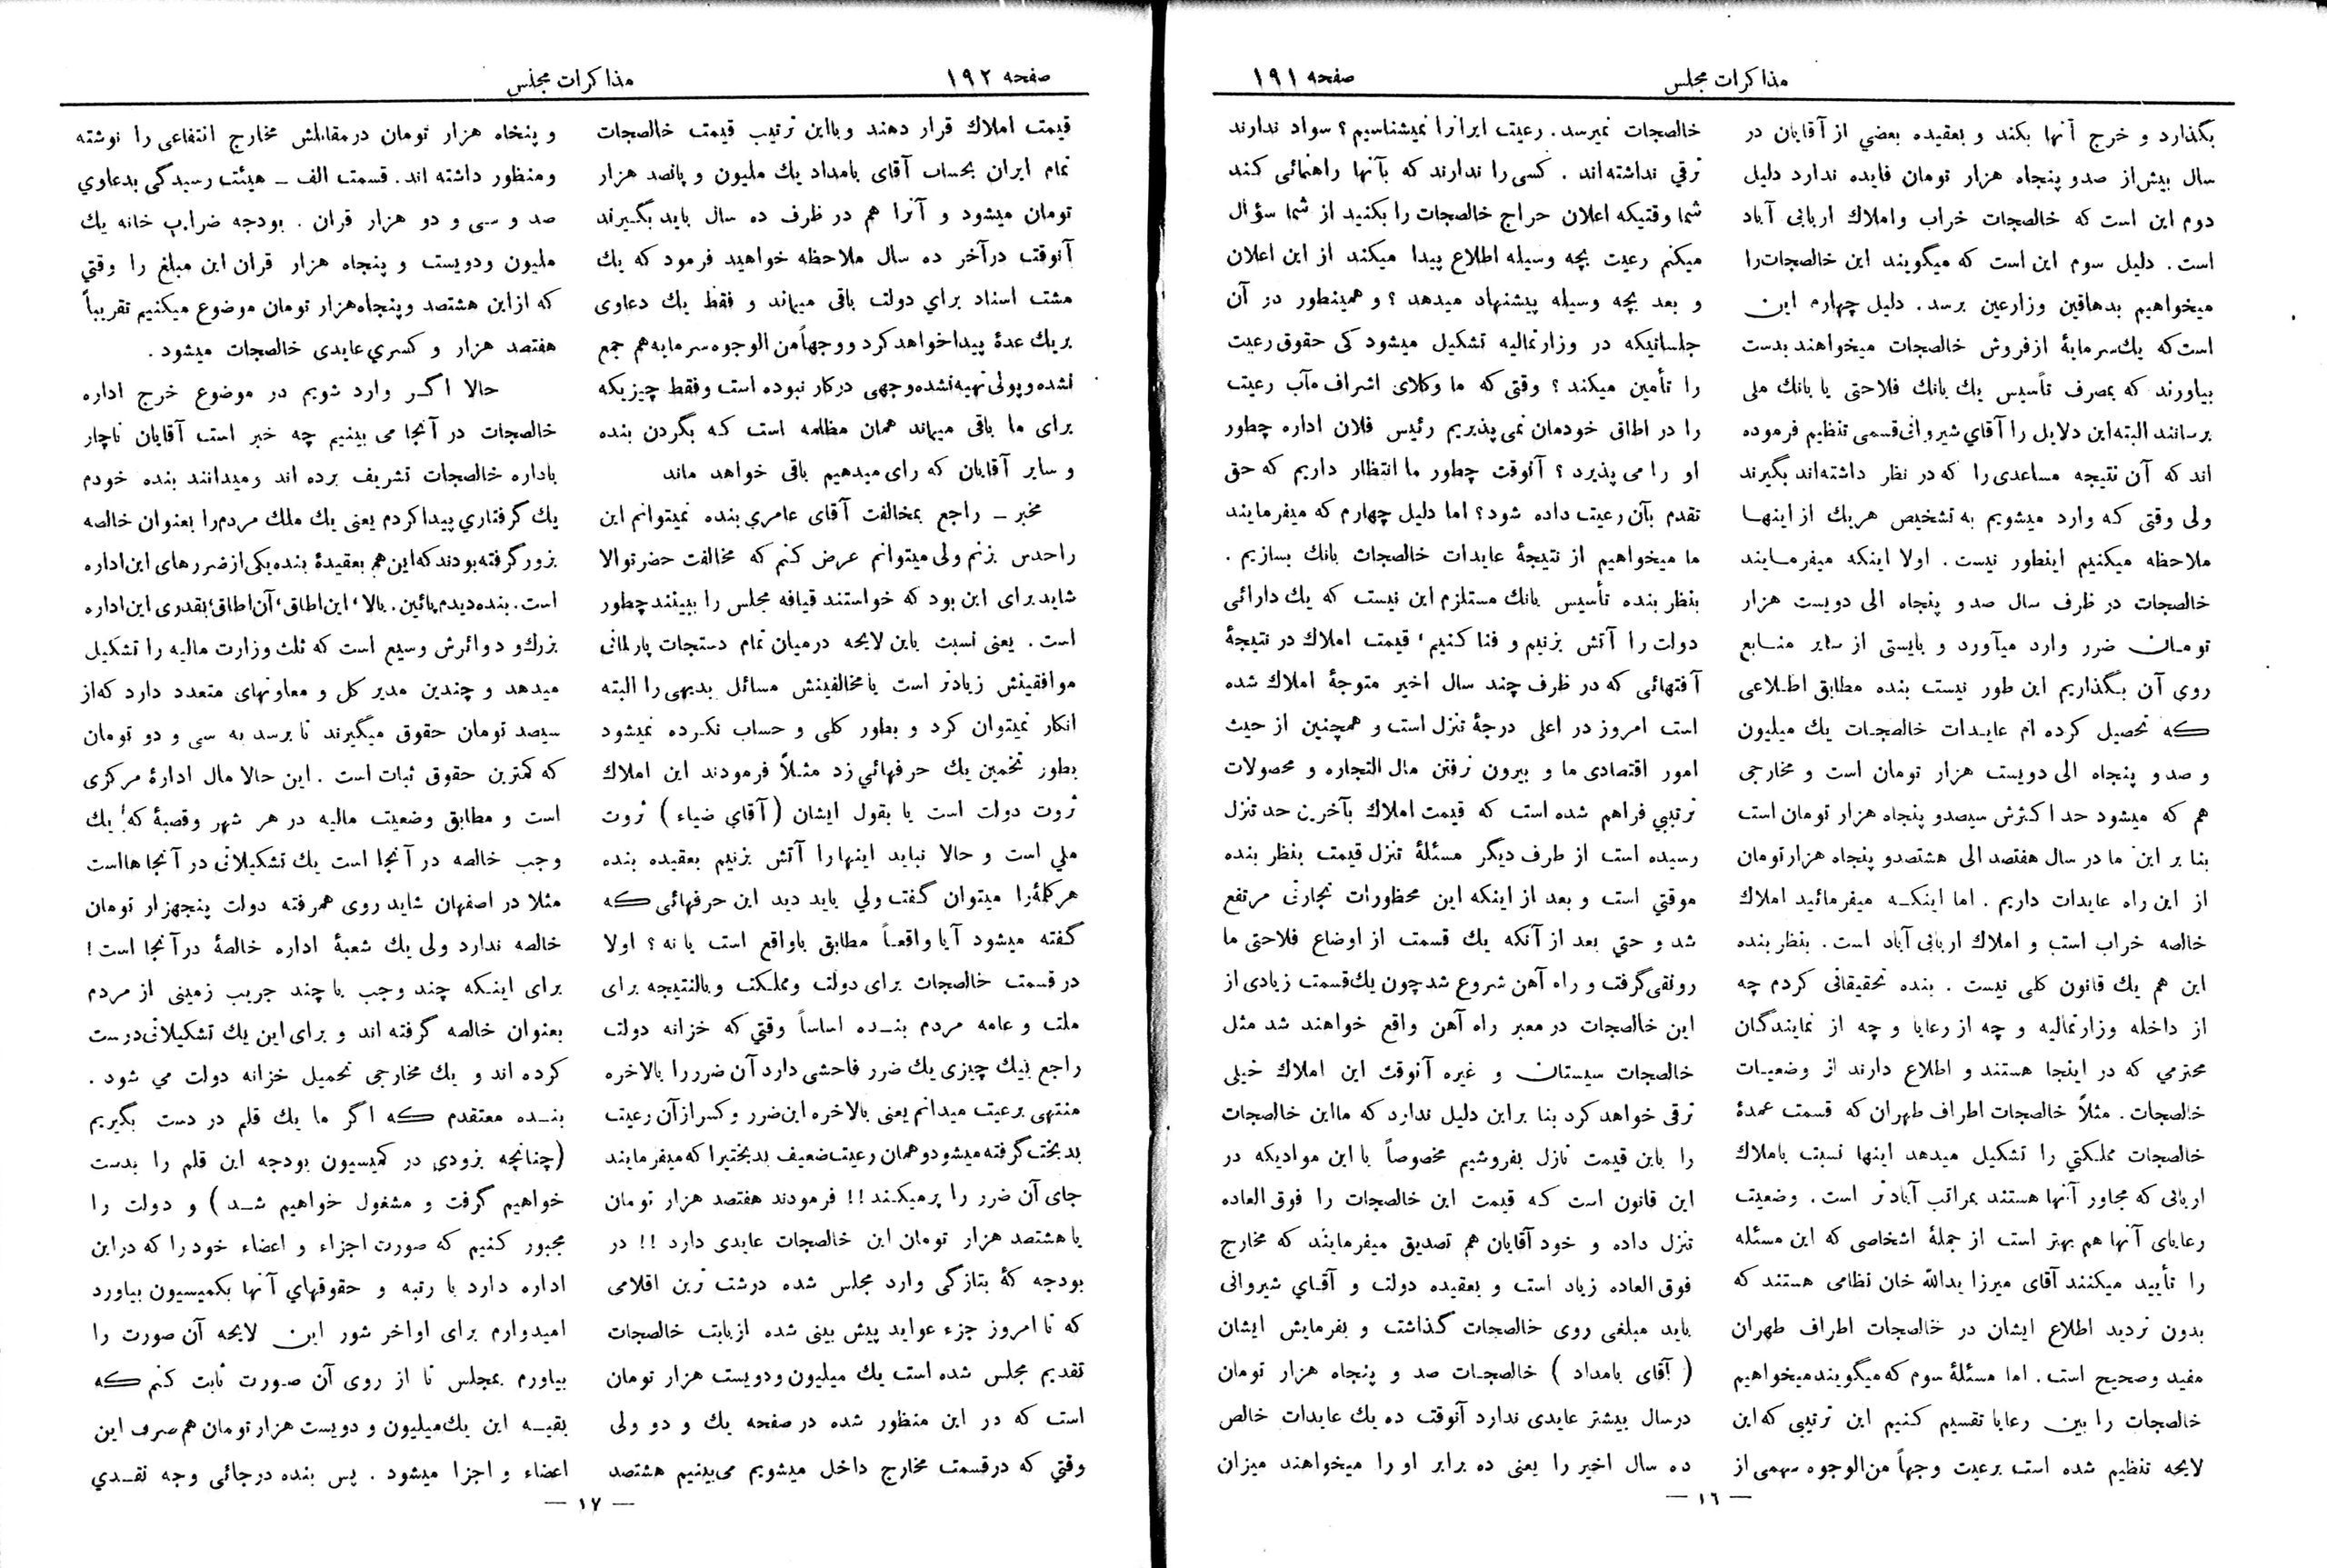 مذاکرات مجلس
صفحه ۱۹۱
بگذارد و خرج آنها بکند و بعقیده بعضي از آقایان در
سال بیش از صدو پنجاه هزار تومان فایده ندارد دلیل
دوم این است که خالصجات خراب واملاك اربابی آباد
است . دلیل سوم این است که میگویند این خالصجات را
میخواهیم بدهاقین وزارعین برسد . دلیل چهارم این
است که یك سرمایهٔ ازفروش خالصجات میخواهند بدست
بیاورند که بمصرف تأسیس یك بانك فلاحتی یا بانك ملی
برسانند البته این دلایل را آقاي شیروانی قسمی تنظیم فرموده
اند که آن نتیجه مساعدی را که در نظر داشته‌اند بگیرند
ولی وقتی که وارد میشویم به تشخیص هریك از اینها
ملاحظه میکنیم اینطور نیست . اولا اینکه میفرمایند
خالصجات در ظرف سال صدو پنجاه الی دویست هزار
تومان ضرر وارد میآورد و بایستی از سایر منابع
روی آن بگذاریم این طور نیست بنده مطابق اطلاعی
که تحصیل کرده ام عایدات خالصجات یك میلیون
و صدو پنجاه الی دویست هزار تومان است و مخارجی
هم که میشود حد اکثرش سیصدو پنجاه هزار تومان است
بنا بر این ما در سال هفتصد الی هشتصدو پنجاه هزارتومان
از این راه عایدات داریم . اما اینکه میفرمائید املاك
خالصه خراب است و املاك اربابی آباد است . بنظر بنده
این هم یك قانون کلی نیست . بنده تحقیقاتی کردم چه
از داخله وزارتمالیه و چه از رعایا و چه از نمایندگان
محترمي که در اینجا هستند و اطلاع دارند از وضعیات
خالصجات . مثلاً خالصجات اطراف طهران که قسمت عمدهٔ
خالصجات مملکتي را تشکیل میدهد اینها نسبت باملاك
اربابی که مجاور آنها هستند بمراتب آبادتر است . وضعیت
رعایای آنها هم بهتر است از جملهٔ اشخاصی که این مسئله
را تأیید میکنند آقای میرزا یدالله خان نظامی هستند که
بدون تردید اطلاع ایشان در خالصجات اطراف طهران
مفید وصحیح است . اما مسئلهٔ سوم که میگویند میخواهیم
خالصجات را بین رعایا تقسیم کنیم این ترتیبی که این
لایحه تنظیم شده است برعیت وجهاً من‌الوجوه سهمی از
خالصجات نمیرسد . رعیت ایرانرا نمیشناسیم ؟ سواد ندارند
ترقي نداشته‌اند . کسی را ندارند که بآنها راهنمائی کند
شما وقتیکه اعلان حراج خالصجات را بکنید از شما سؤال
میکنم رعیت بچه وسیله اطلاع پیدا میکند از این اعلان
و بعد بچه وسیله پیشنهاد میدهد ؟ و همینطور در آن
جلساتیکه در وزارتمالیه تشکیل میشود کی حقوق رعیت
را تأمین میکند ؟ وقتی که ما وکلای اشراف مآب رعیت
را در اطاق خودمان نمی‌پذیریم رئیس فلان اداره چطور
او را می پذیرد ؟ آنوقت چطور ما انتظار داریم که حق
تقدم بآن رعیت داده شود ؟ اما دلیل چهارم که میفرمایند
ما میخواهیم از نتیجهٔ عایدات خالصجات بانك بسازیم .
بنظر بنده تأسیس بانك مستلزم این نیست که یك دارائی
دولت را آتش بزنیم و فنا کنیم ، قیمت املاك در نتیجهٔ
آفتهائی که در ظرف چند سال اخیر متوجهٔ املاك شده
است امروز در اعلی درجهٔ تنزل است و همچنین از حیث
امور اقتصادی ما و بیرون نرفتن مال التجاره و محصولات
ترتیبي فراهم شده است که قیمت املاك بآخرین حد تنزل
رسیده است از طرف دیگر مسئلهٔ تنزل قیمت بنظر بنده
موقتي است و بعد از اینکه این محظورات تجارتی مرتفع
شد و حتي بعد از آنکه یك قسمت از اوضاع فلاحتی ما
رونقی گرفت و راه آهن شروع شد چون یك قسمت زیادی از
این خالصجات در معبر راه آهن واقع خواهند شد مثل
خالصجات سیستان و غیره آنوقت این املاك خیلی
ترقی خواهد کرد بنا براین دلیل ندارد که مااین خالصجات
را باین قیمت نازل بفروشیم مخصوصاً با این موادیکه در
این قانون است که قیمت این خالصجات را فوق العاده
تنزل داده و خود آقایان هم تصدیق میفرمایند که مخارج
فوق العاده زیاد است و بعقیده دولت و آقاي شیروانی
باید مبلغی روی خالصجات گذاشت و بفرمایش ایشان
( آقای بامداد ) خالصجات صد و پنجاه هزار تومان
درسال بیشتر عایدی ندارد آنوقت ده یك عایدات خالص
ده سال اخیر را یعنی ده برابر او را میخواهند میزان
— ۱٦ —
صفحه ۱۹۲
مذاکرات مجلس
قیمت املاك قرار دهند وبااین ترتیب قیمت خالصجات
تمام ایران بحساب آقای بامداد یك ملیون و پانصد هزار
تومان میشود و آنرا هم در ظرف ده سال باید بگیرند
آنوقت درآخر ده سال ملاحظه خواهید فرمود که یك
مشت اسناد براي دولت باقی میماند و فقط یك دعاوی
بریك عدهٔ پیدا خواهد کرد ووجهاًمن الوجوه سرمایه هم جمع
نشده و پولی تهیه نشده وجهی درکار نبوده است و فقط چیزیکه
برای ما باقی میماند همان مظلمه است که بگردن بنده
و سایر آقایان که رای میدهیم باقی خواهد ماند
مخبر ــ راجع بمخالفت آقای عامري بنده نمیتوانم این
راحدس بزنم ولی میتوانم عرض کنم که مخالفت حضرتوالا
شاید برای این بود که خواستند قیافه مجلس را ببینند چطور
است . یعنی نسبت باین لایحه درمیان تمام دستجات پارلمانی
موافقینش زیادتر است یا مخالفینش مسائل بدیهی را البته
انکار نمیتوان کرد و بطور کلی و حساب نکرده نمیشود
بطور تخمین یك حرفهائي زد مثلاً فرمودند این املاك
ثروت دولت است یا بقول ایشان ( آقاي ضیاء ) ثروت
ملي است و حالا نباید اینهارا آتش بزنیم بعقیده بنده
هرکلمهٔرا میتوان گفت ولي باید دید این حرفهائی که
گفته میشود آیا واقعاً مطابق باواقع است یا نه ؟ اولا
در قسمت خالصجات برای دولت ومملکت و بالنتیجه برای
ملت و عامه مردم بنده اساساً وقتي که خزانه دولت
راجع بیك چیزی یك ضرر فاحشی دارد آن ضرررا بالاخره
منتهی برعیت میدانم یعنی بالاخره این ضرر و کسر از آن رعیت
بدبخت گرفته میشود وهمان رعیت ضعیف بدبختیرا که میفرمایند
جای آن ضرر را پرمیکند !! فرمودند هفتصد هزار تومان
یا هشتصد هزار تومان این خالصجات عایدی دارد !! در
بودجه کهٔ بتازگی وارد مجلس شده درشت ترین اقلامی
که تا امروز جزء عواید پیش بینی شده ازبابت خالصجات
تقدیم مجلس شده است یك میلیون ودویست هزار تومان
است که در این منظور شده در صفحه یك و دو ولی
وقتي که در قسمت مخارج داخل میشویم می‌بینیم هشتصد
و پنجاه هزار تومان درمقابلش مخارج انتفاعی را نوشته
ومنظور داشته اند . قسمت الف ــ هیئت رسیدگی بدعاوي
صد و سی و دو هزار قران . بودجه ضراب خانه یك
ملیون ودویست و پنجاه هزار قران این مبلغ را وقتي
که ازاین هشتصد وپنجاه هزار تومان موضوع میکنیم تقریباً
هفتصد هزار و کسري عایدی خالصجات میشود .
حالا اگر وارد شویم در موضوع خرج اداره
خالصجات در آنجا می بینیم چه خبر است آقایان ناچار
باداره خالصجات تشریف برده اند ومیدانند بنده خودم
یك گرفتاري پیدا کردم یعنی یك ملك مردم را بعنوان خالصه
بزور گرفته بودند که این هم بعقیدهٔ بنده یکی از ضررهای این اداره
است . بنده دیدم پائین . بالا ، این اطاق ، آن اطاق ، بقدری این اداره
بزرك و دوائرش وسیع است که ثلث وزارت مالیه را تشکیل
میدهد و چندین مدیر کل و معاونهای متعدد دارد که از
سیصد تومان حقوق میگیرند تا برسد به سی و دو تومان
که کمترین حقوق ثبات است . این حالا مال ادارهٔ مرکزی
است و مطابق وضعیت مالیه در هر شهر وقصبهٔ که یك
وجب خالصه در آنجا است یك تشکیلاتی در آنجا هااست
مثلا در اصفهان شاید روی همرفته دولت پنجهزار تومان
خالصه ندارد ولی یك شعبهٔ اداره خالصهٔ در آنجا است !
برای اینکه چند وجب یا چند جریب زمینی از مردم
بعنوان خالصه گرفته اند و برای این یك تشکیلاتی درست
کرده اند و یك مخارجی تحمیل خزانه دولت مي شود .
بنده معتقدم که اگر ما یك قلم در دست بگیریم
(چنانچه بزودي در کمیسیون بودجه این قلم را بدست
خواهیم گرفت و مشغول خواهیم شد ) و دولت را
مجبور کنیم که صورت اجزاء و اعضاء خود را که در این
اداره دارد با رتبه و حقوقهاي آنها بکمیسیون بیاورد
امیدوارم برای اواخر شور این لایحه آن صورت را
بیاورم بمجلس تا از روی آن صورت ثابت کنم که
بقیه این یك میلیون و دویست هزار تومان هم صرف این
اعضاء و اجزا میشود . پس بنده درجائی وجه نقدي
— ۱۷ —